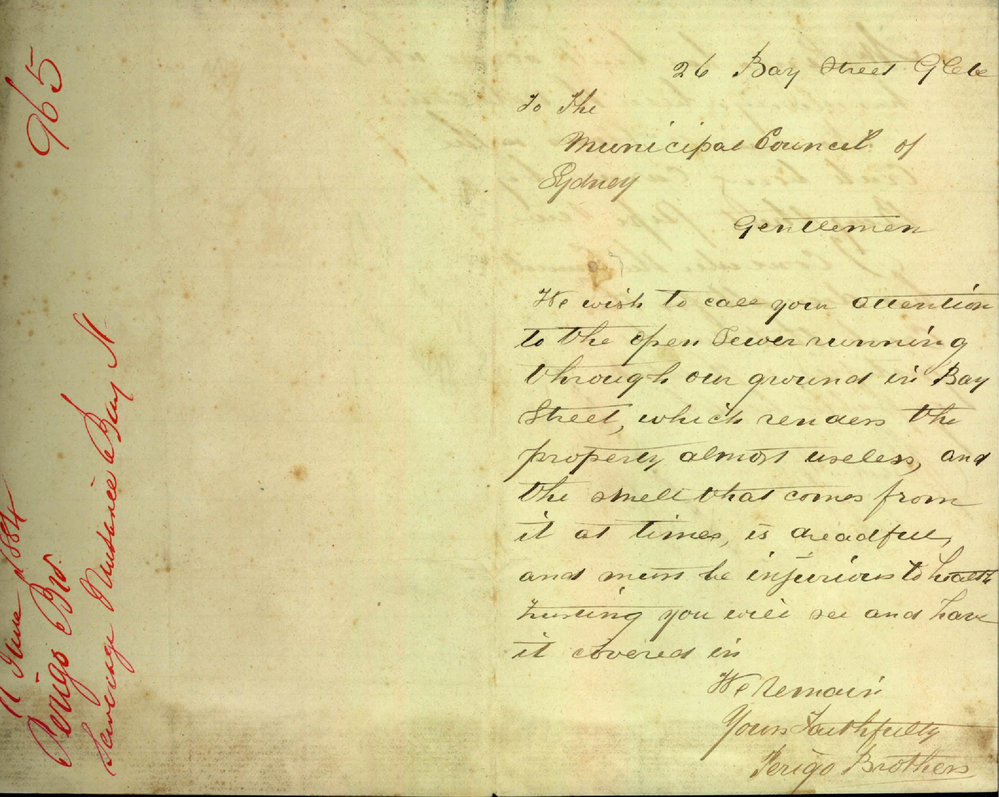 965
11 June 1884
Perigo Bros.
Sewerage Nuisance Bay St
26 Bay Street Glebe
To The
Municipal Council of
Sydney
Gentlemen
We wish to call your attention
to the open Sewer running
through our ground in Bay
Street, which renders the
property almost useless, and
the smell that comes from
it at times, is dreadful,
and must be injurious to health
trusting you will see and have
it covered in
We Remain
Yours Faithfully
Perigo Brothers